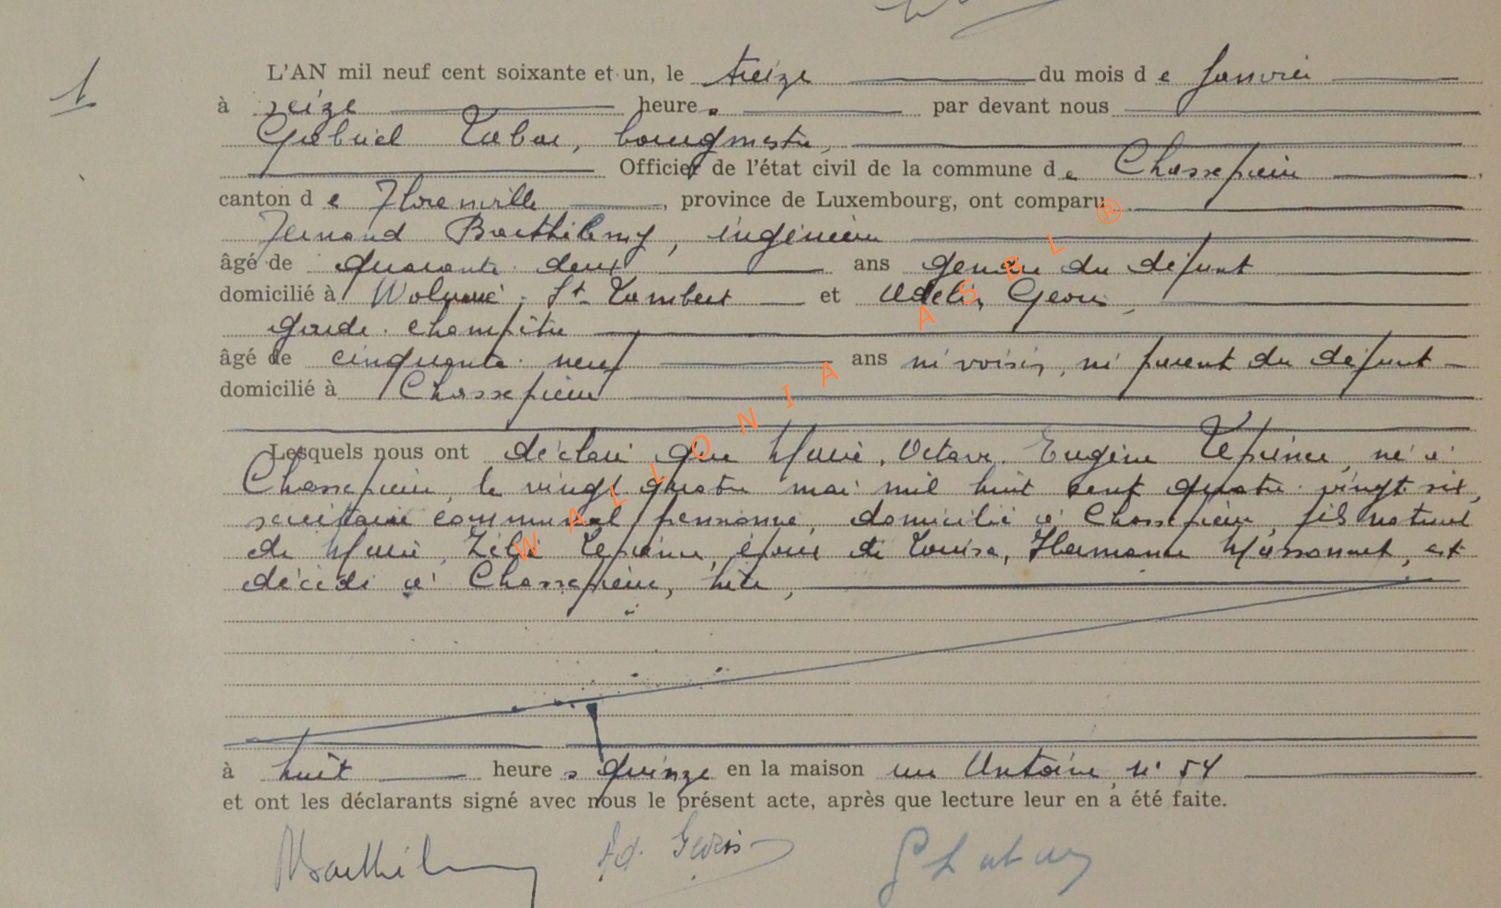 1
L'AN mil neuf cent soixante et un, le treize du mois de Janvier
à seize heures par devant nous
Gabriel Labar, bourgmestre,
Officier de l'état civil de la commune de Chassepierre,
canton de Florenville, province de Luxembourg, ont comparu
Fernand Barthélemy, ingénieur
âgé de quarante deux ans gendre du défunt
domicilié à Woluwé St Lambert et Adelin
garde champêtre
âgé de cinquante neuf ans ni voisin, ni parent du défunt
domicilié à Chassepierre
Lesquels nous ont déclaré que Marie, Octave, Eugène Leprince, né à
Chassepierre, le vingt quatre mai mil huit cent quatre vingt six,
secrétaire communal pensionné, domicilié à Chassepierre, fils naturel
de Marie, Zélie Leprince, époux de Louise, Hermance Massonnet, est
décédé à Chassepierre, hier,
à huit heures quinze en la maison rue Antoine, n° 54
et ont les déclarants signé avec nous le présent acte, après que lecture leur en a été faite.
WALLONIA ASBL ®